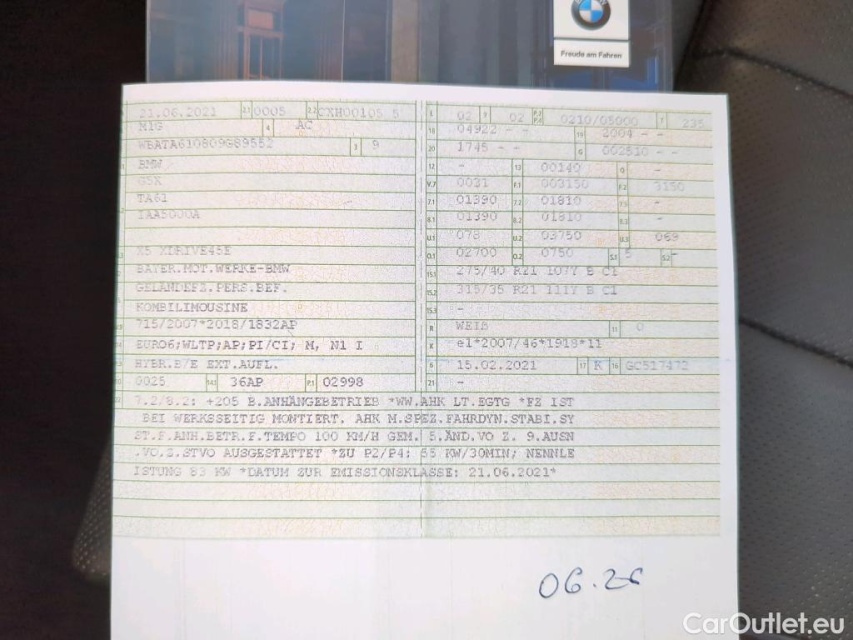 Freude am Fahren
21.06.2021 2.1 0005 2.2 CXH00105 5
M1G 4 AC
WBATA610809G89552 3 9
BMW
G5X
TA61
1AA5000A
X5 XDRIVE45E
BAYER.MOT.WERKE-BMW
GELÄNDEFZ.PERS.BEF.
KOMBILIMOUSINE
715/2007*2018/1832AP
EURO6;WLTP;AP;PI/CI; M, N1 I
HYBR.B/E EXT.AUFL.
0025 14.1 36AP P.1 02998
02 02 0210/05000 T 235
18 04922 - - 19 2004 - -
20 1745 - - G 002510 - -
12 - 13 00140 Q -
V.7 0031 F.1 003150 F.2 3150
7.1 01390 7.2 01810 7.3 -
8.1 01390 8.2 01810 8.3 -
U.1 078 U.2 03750 U.3 069
O.1 02700 O.2 0750 S.1 5 S.2 -
15.1 275/40 R21 107Y B C1
15.2 315/35 R21 111Y B C1
15.3 -
R WEIß 11 0
K e1*2007/46*1918*11
6 15.02.2021 17 K 16 GC517472
21 -
7.2/8.2: +205 B.ANHÄNGEBETRIEB *WW.AHK LT.EGTG *FZ IST
BEI WERKSSEITIG MONTIERT. AHK M.SPEZ.FAHRDYN.STABI.SY
ST.F.ANH.BETR.F.TEMPO 100 KM/H GEM. 5.ÄND.VO Z. 9.AUSN
.VO.Z.STVO AUSGESTATTET *ZU P2/P4: 55 KW/30MIN; NENNLE
ISTUNG 83 KW *DATUM ZUR EMISSIONSKLASSE: 21.06.2021*
06.26
CarOutlet.eu